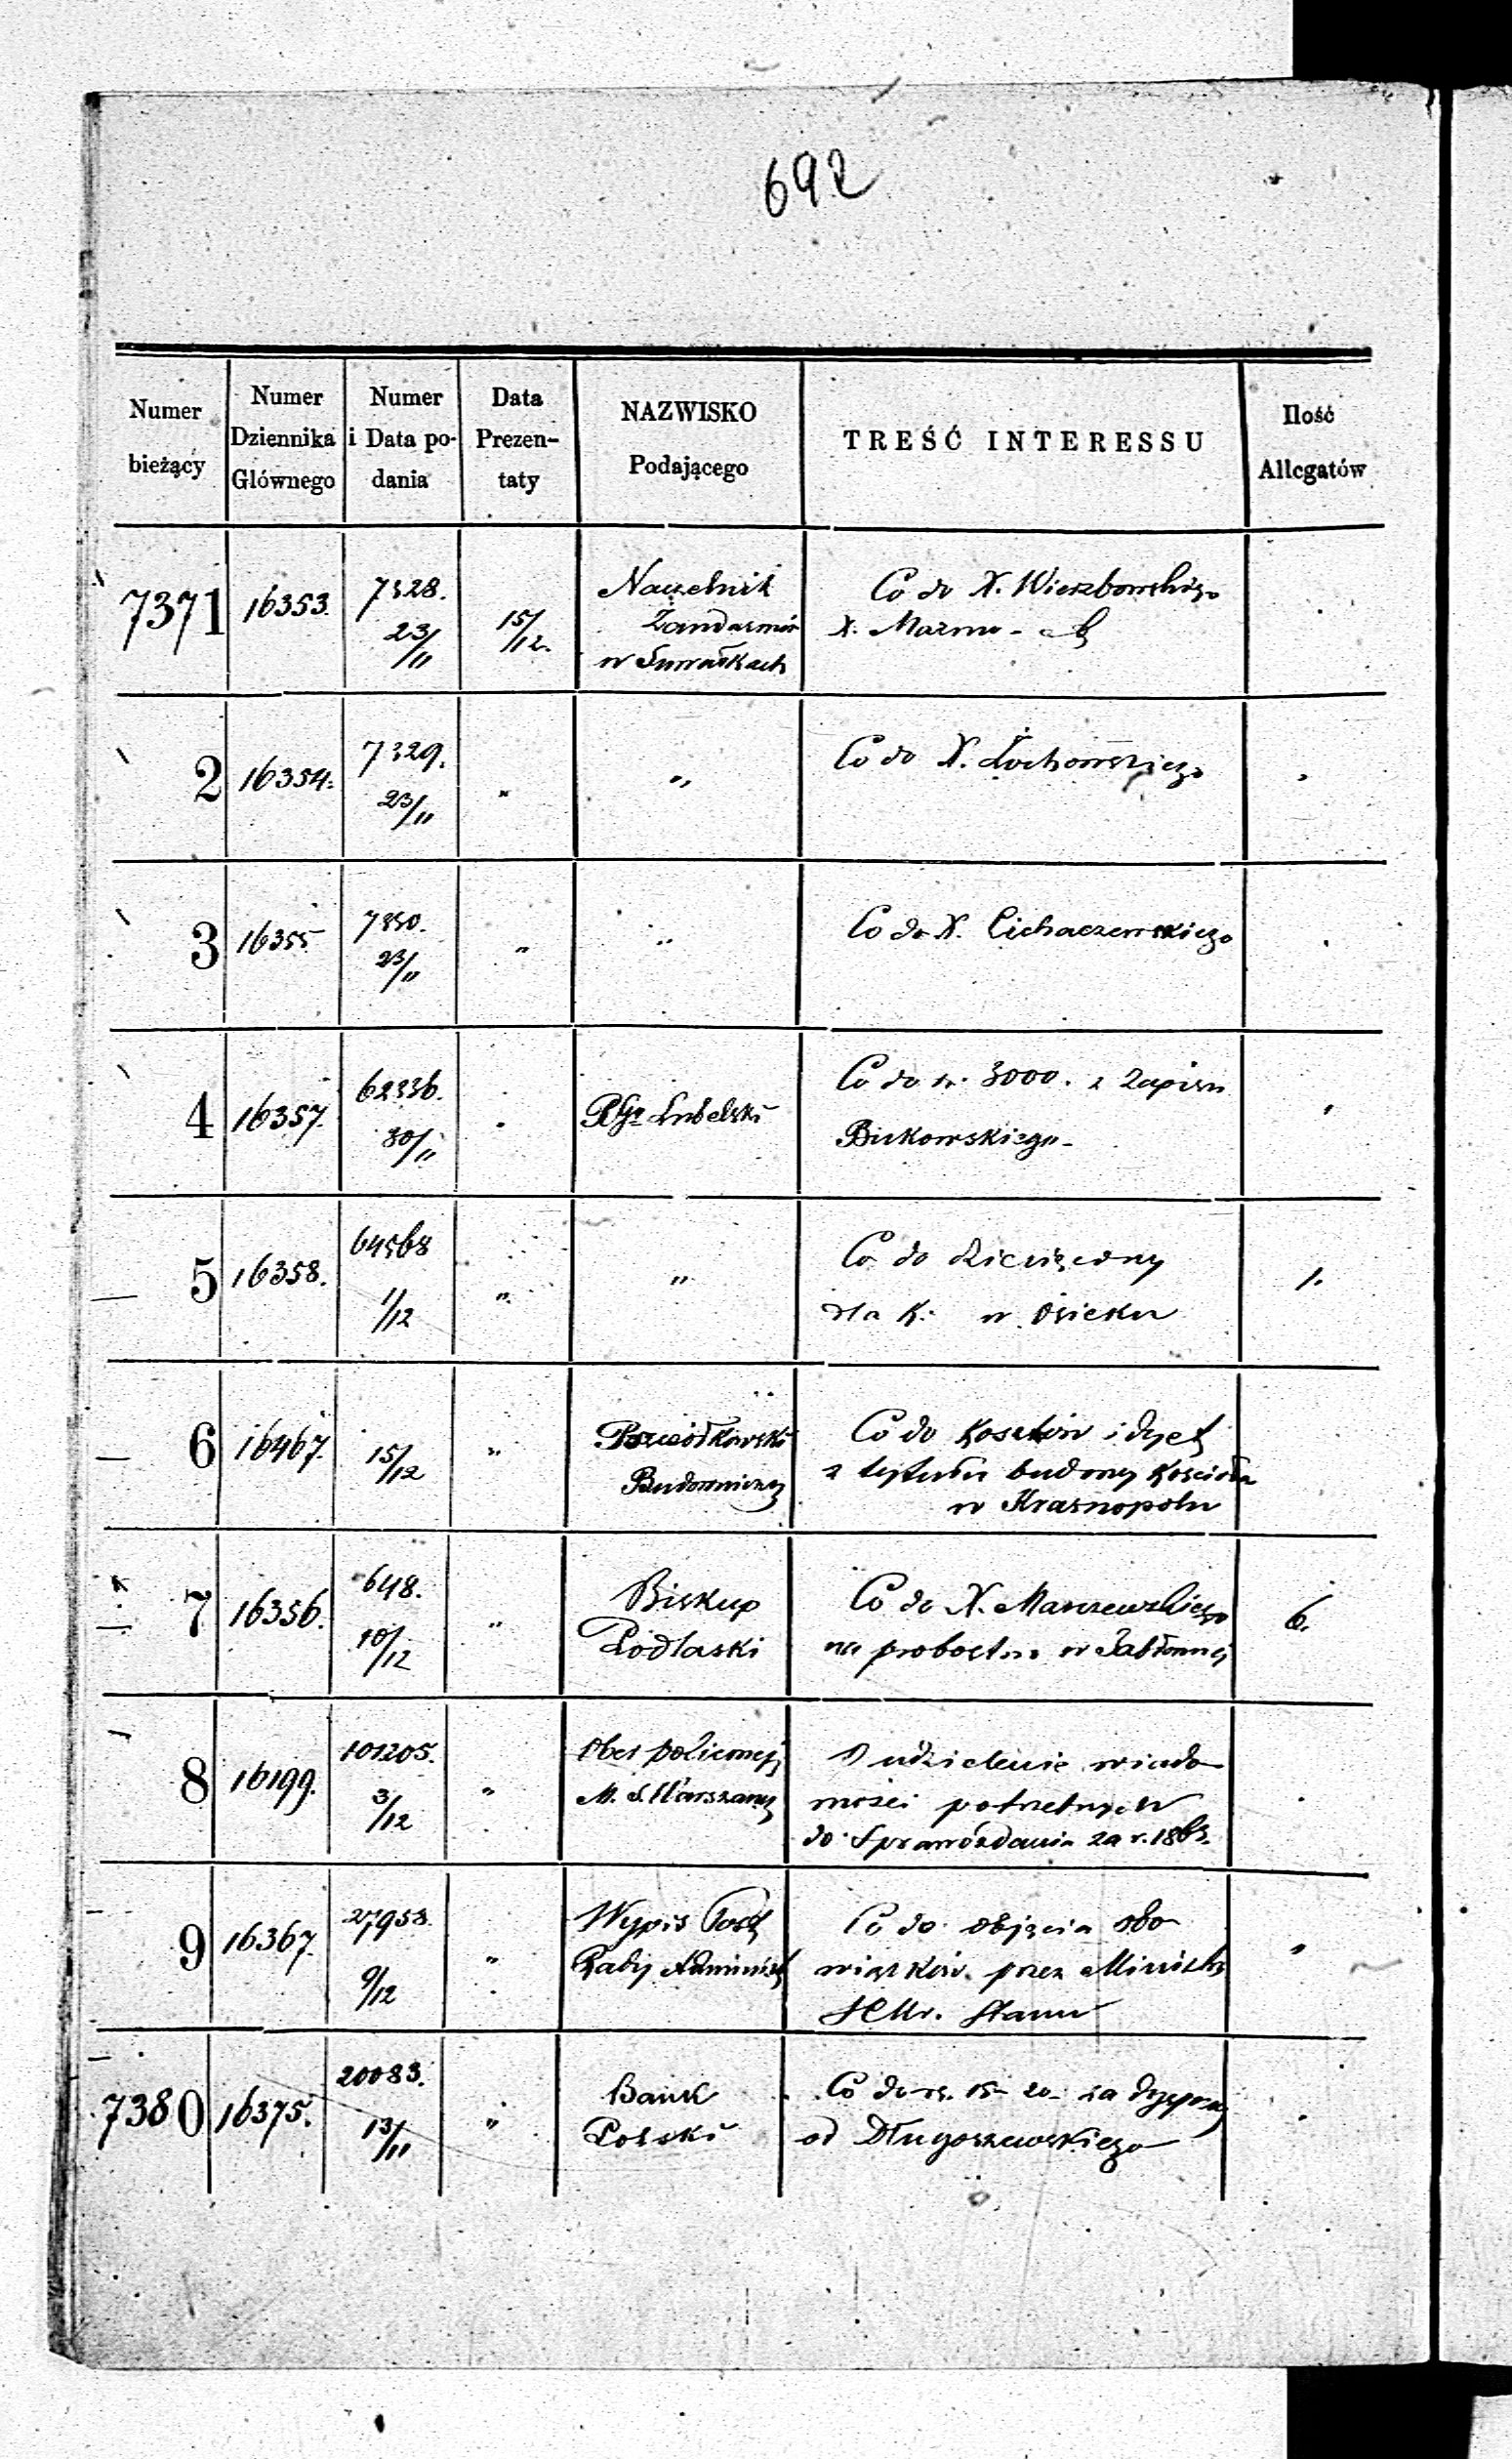 692
Numer bieżący
Numer Dziennika Głównego
Numer i Data podania
Data Prezentaty
NAZWISKO Podającego
TREŚĆ INTERESSU
Ilość Allegatów
7371 16353. 7328. 23/11 15/12.
Naczelnik
Żandarmów
w Suwałkach
Co do X. Wierzbowskiego
X.
2 16354. 7329. 23/11 " "
Co do X. Łochowskiego
3 16355 7330. 23/11 " "
Co do X. Cichaczewskiego
4 16357. 62336. 30/11
Lubelski
Co do rs. 3000. z Zapisu
Bukowskiego
5 16358. 64568 1/12 " "
Co do dziesięciny
dla K. w Osieku
1.
6 16467. 15/12 "
Budowniczy
Co do kosztów i dyet
z tytułu budowy Kościoła
w Krasnopolu
7 16356. 648. 10/12 "
Biskup
Podlaski
Co do X.
na probostwo w Jabłonnej
6.
8 16199. 101205. 3/12 "
Ober policmej.
M. S. Warszawy
O udzielenie wiado
mości potrzebnych
do Sprawozdania za r. 1865.
9 16367. 27958. 9/12 "
Wypis Posiedz
Rady Administ
Co do objęcia obo
wiązków przez Ministra
Stanu
"
7380 16375. 20083. 13/11 "
Bank
Polski
Co do rs. 15 20
od Długoszewskiego